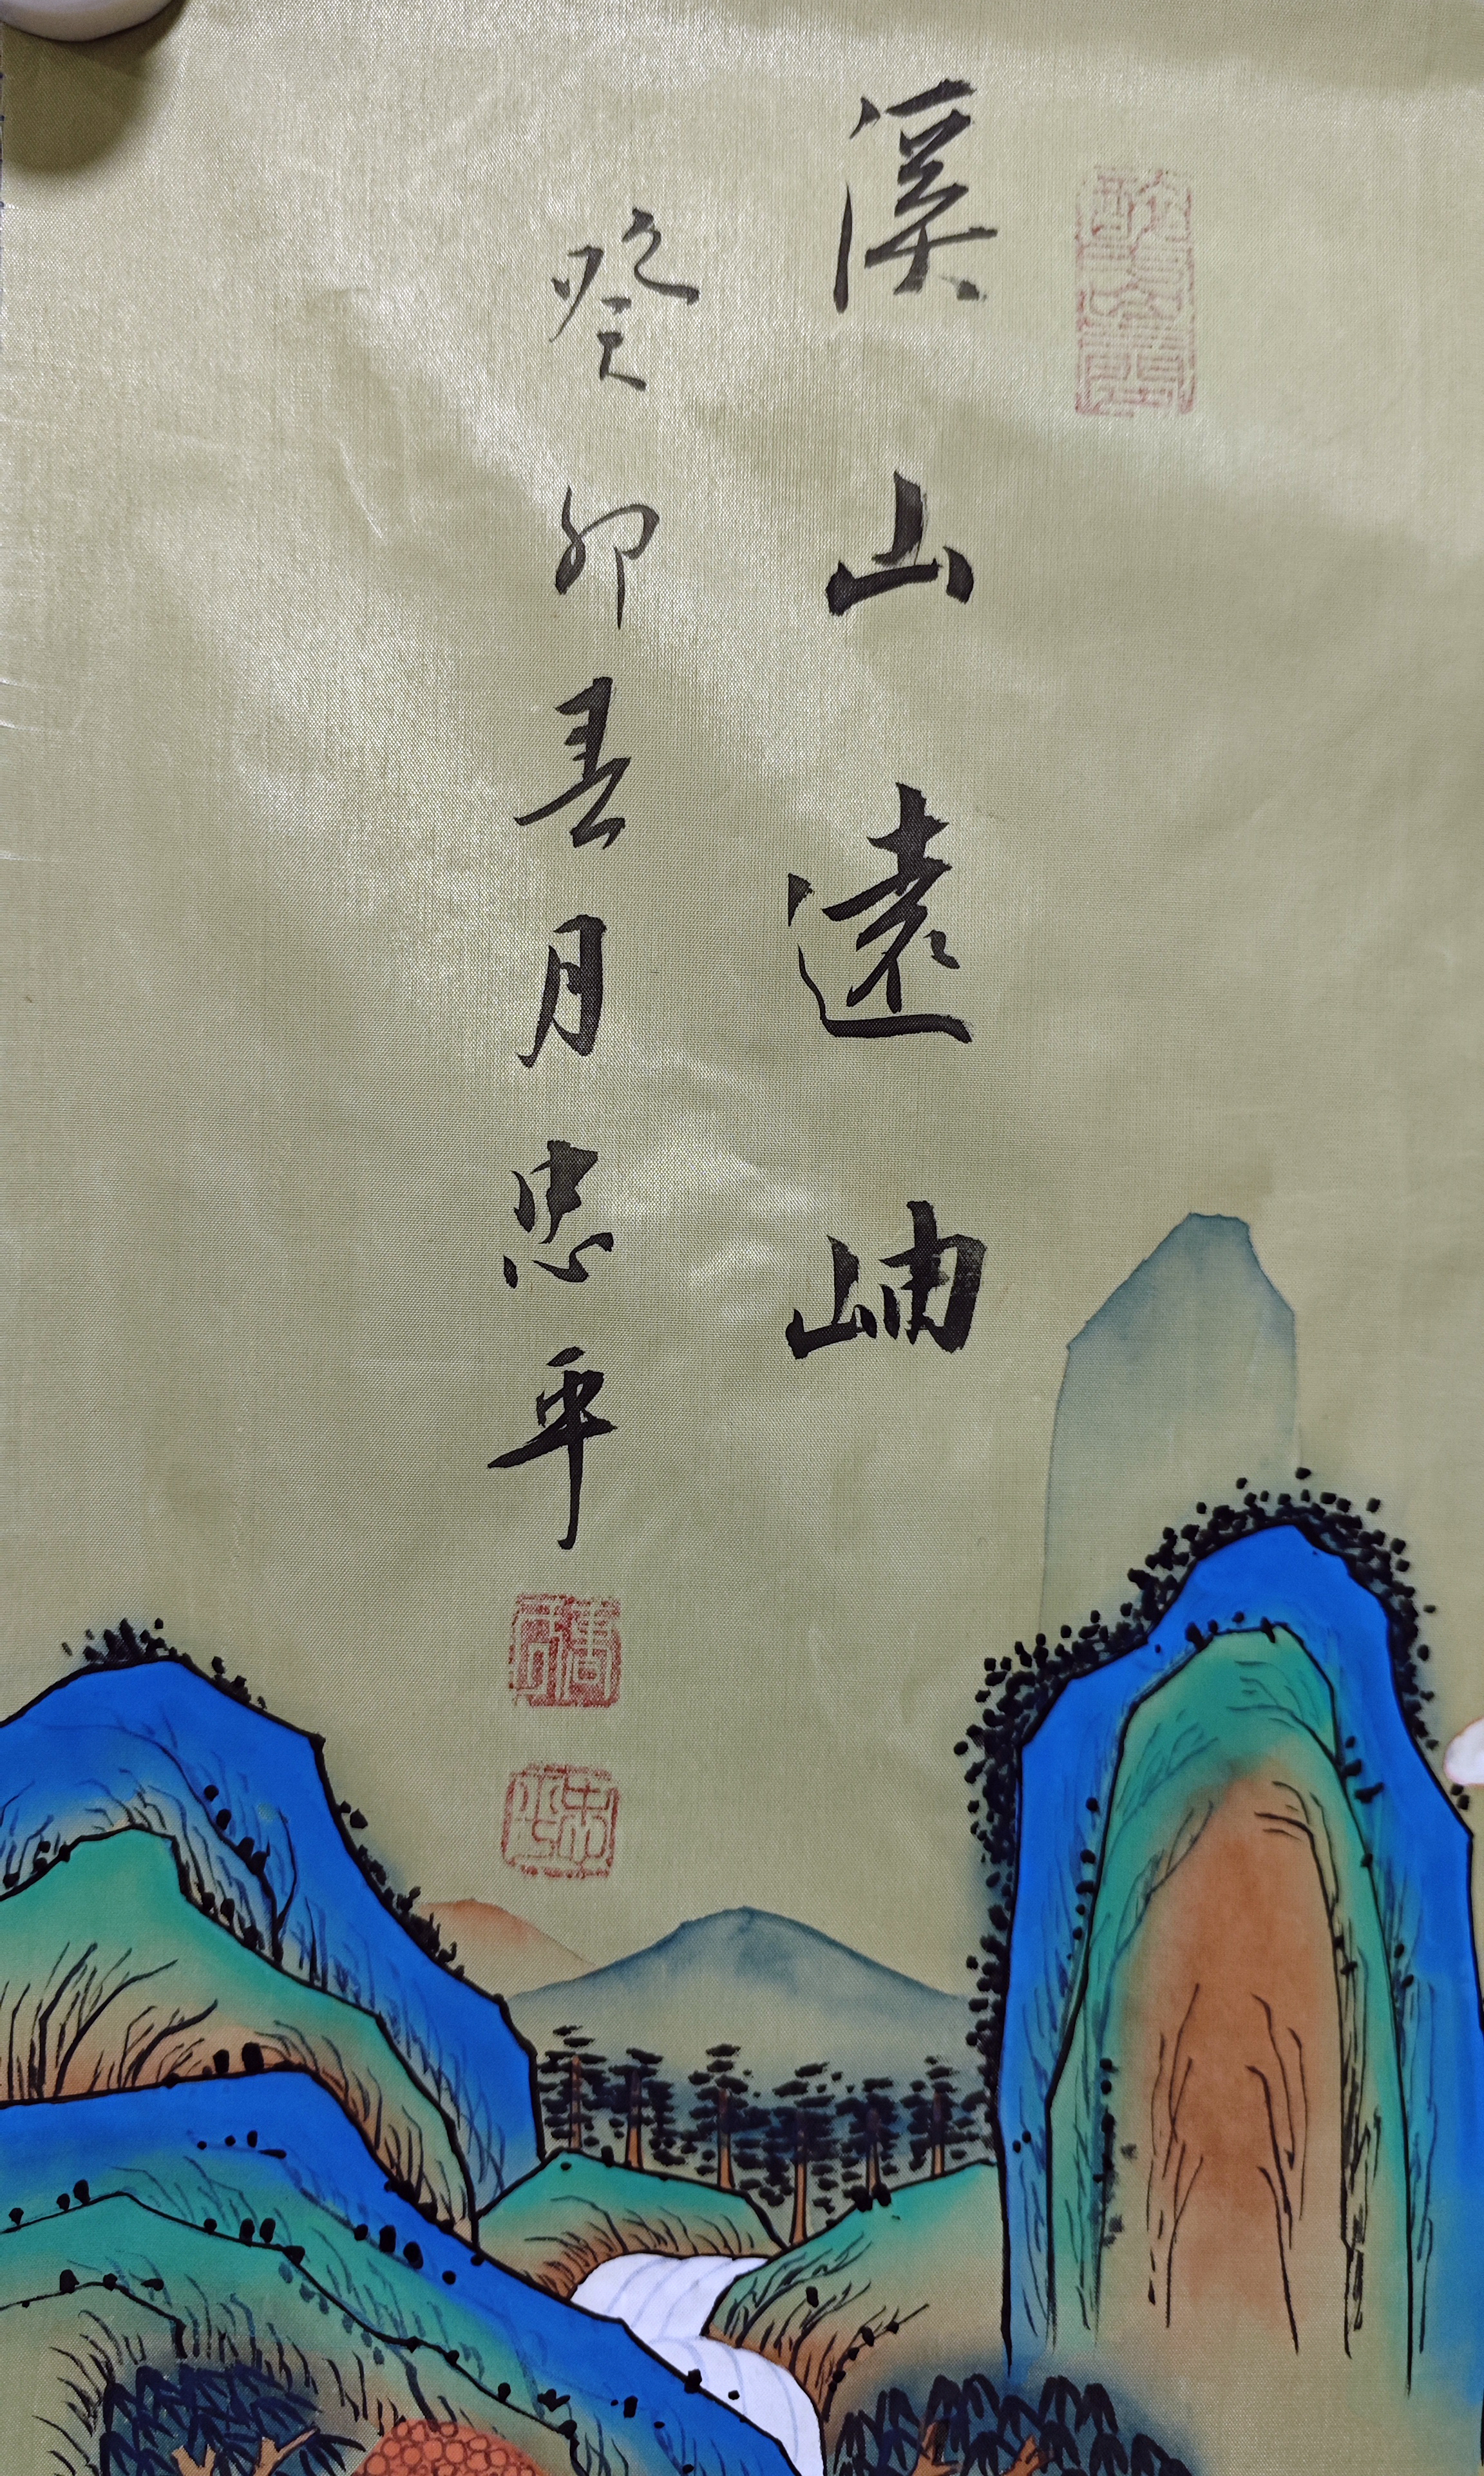 溪山遠岫
癸卯春月忠平
忠平